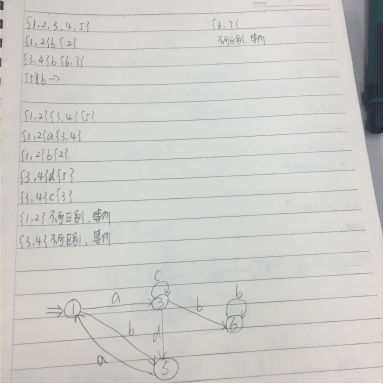 {1,2,3,4,5} {6,7}
{1,2}b{2} 不可区别,等价
{3,4}b{6,7}
{5}b→
{1,2}{3,4}{5}
{1,2}a{3,4}
{1,2}b{2}
{3,4}d{5}
{3,4}c{3}
{1,2}不可区别,等价
{3,4}不可区别,等价
c
a
b
b
1
3
6
b
d
a
5